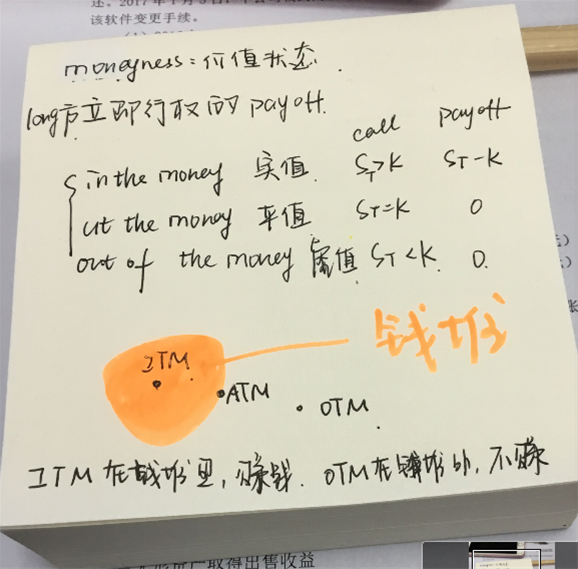 该软件变更手续。
moneyness：价值状态.
long方立即行权的 payoff.
call payoff
in the money 实值. ST>K ST-K
at the money 平值 ST=K 0
out of the money 虚值 ST<K. 0.
钱堆
ITM.
ATM
OTM
ITM 在钱堆里，赚钱. OTM在钱堆外，不赚
取得出售收益